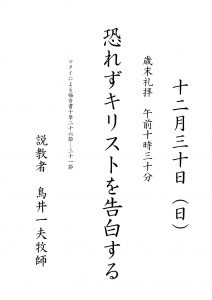 十二月三十日（日）
歳末礼拝　午前十時三十分
恐れずキリストを告白する
マタイによる福音書十章二十六節―三十一節
説教者　鳥井一夫牧師